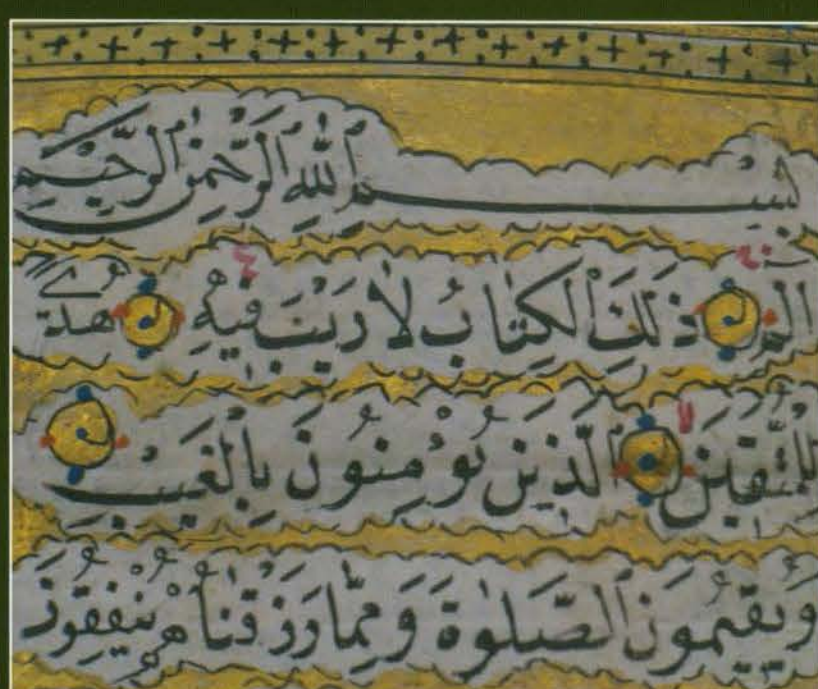 بِسْمِ اللّٰهِ الرَّحْمٰنِ الرَّحِيمِ
الم ذَلِكَ الْكِتَابُ لَا رَيْبَ فِيهِ هُدًى
لِلْمُتَّقِينَ الَّذِينَ يُؤْمِنُونَ بِالْغَيْبِ
وَيُقِيمُونَ الصَّلٰوةَ وَمِمَّا رَزَقْنَاهُمْ يُنْفِقُونَ